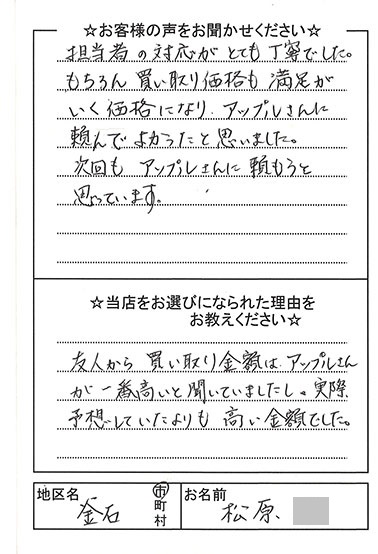 ☆お客様の声をお聞かせください☆
担当者の対応がとても丁寧でした。
もちろん買い取り価格も満足が
いく価格になり、アップルさんに
頼んでよかったと思いました。
次回もアップルさんに頼もうと
思っています。
☆当店をお選びになられた理由を
お教えください☆
友人から買い取り金額は、アップルさん
が一番高いと聞いていましたし。実際
予想していたよりも高い金額でした。
地区名
金石
市
町
村
お名前
松原